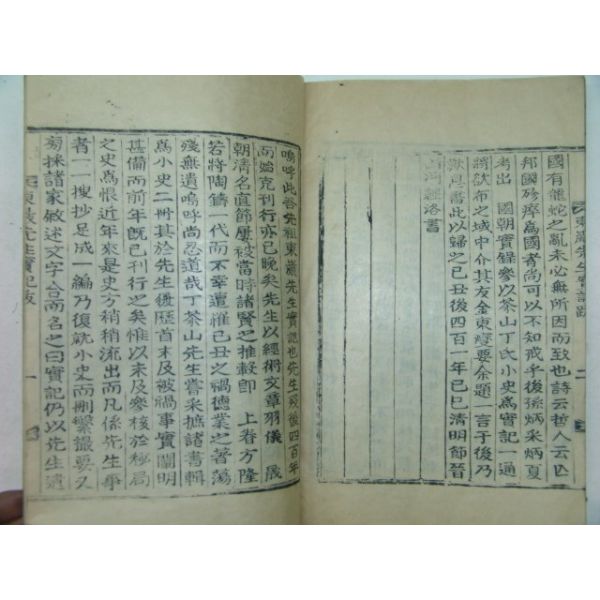 東巖先生實記跋
二
國有龍蛇之亂未必無所因而致也詩云哲人云亡
邦國殄瘁爲國者尚可以不知戒乎後孫炳采炳夏
考出 國朝實錄參以茶山丁氏小史爲實記一通
將欲布之域中介其友金東燮要余題一言于後乃
書此以歸之己丑後四百一年己巳清明節晉
山河經洛書
嗚呼此吾先祖東巖先生實記也先生歿後四百年
而始克刊行亦已晚矣先生以經術文章羽儀 宣
朝清名直節屢被當時諸賢之推轂卽 上眷方隆
若將陶鑄一代而不幸遭罹己丑之禍德業之著蕩
殘無遺嗚呼尚忍道哉丁茶山先生嘗采摭諸書輯
爲小史二冊其於先生履歷首末及被禍事實闡明
甚備而前年旣已刊行之矣惟以未及參核於秘局
之史爲恨近年來是史方稍稍流出而凡係先生事
者一一搜抄足成一編乃復就小史而刪繁撮要又
菊採諸家敘述文字合而名之曰實記仍以先生遺
東巖先生實記跋
一